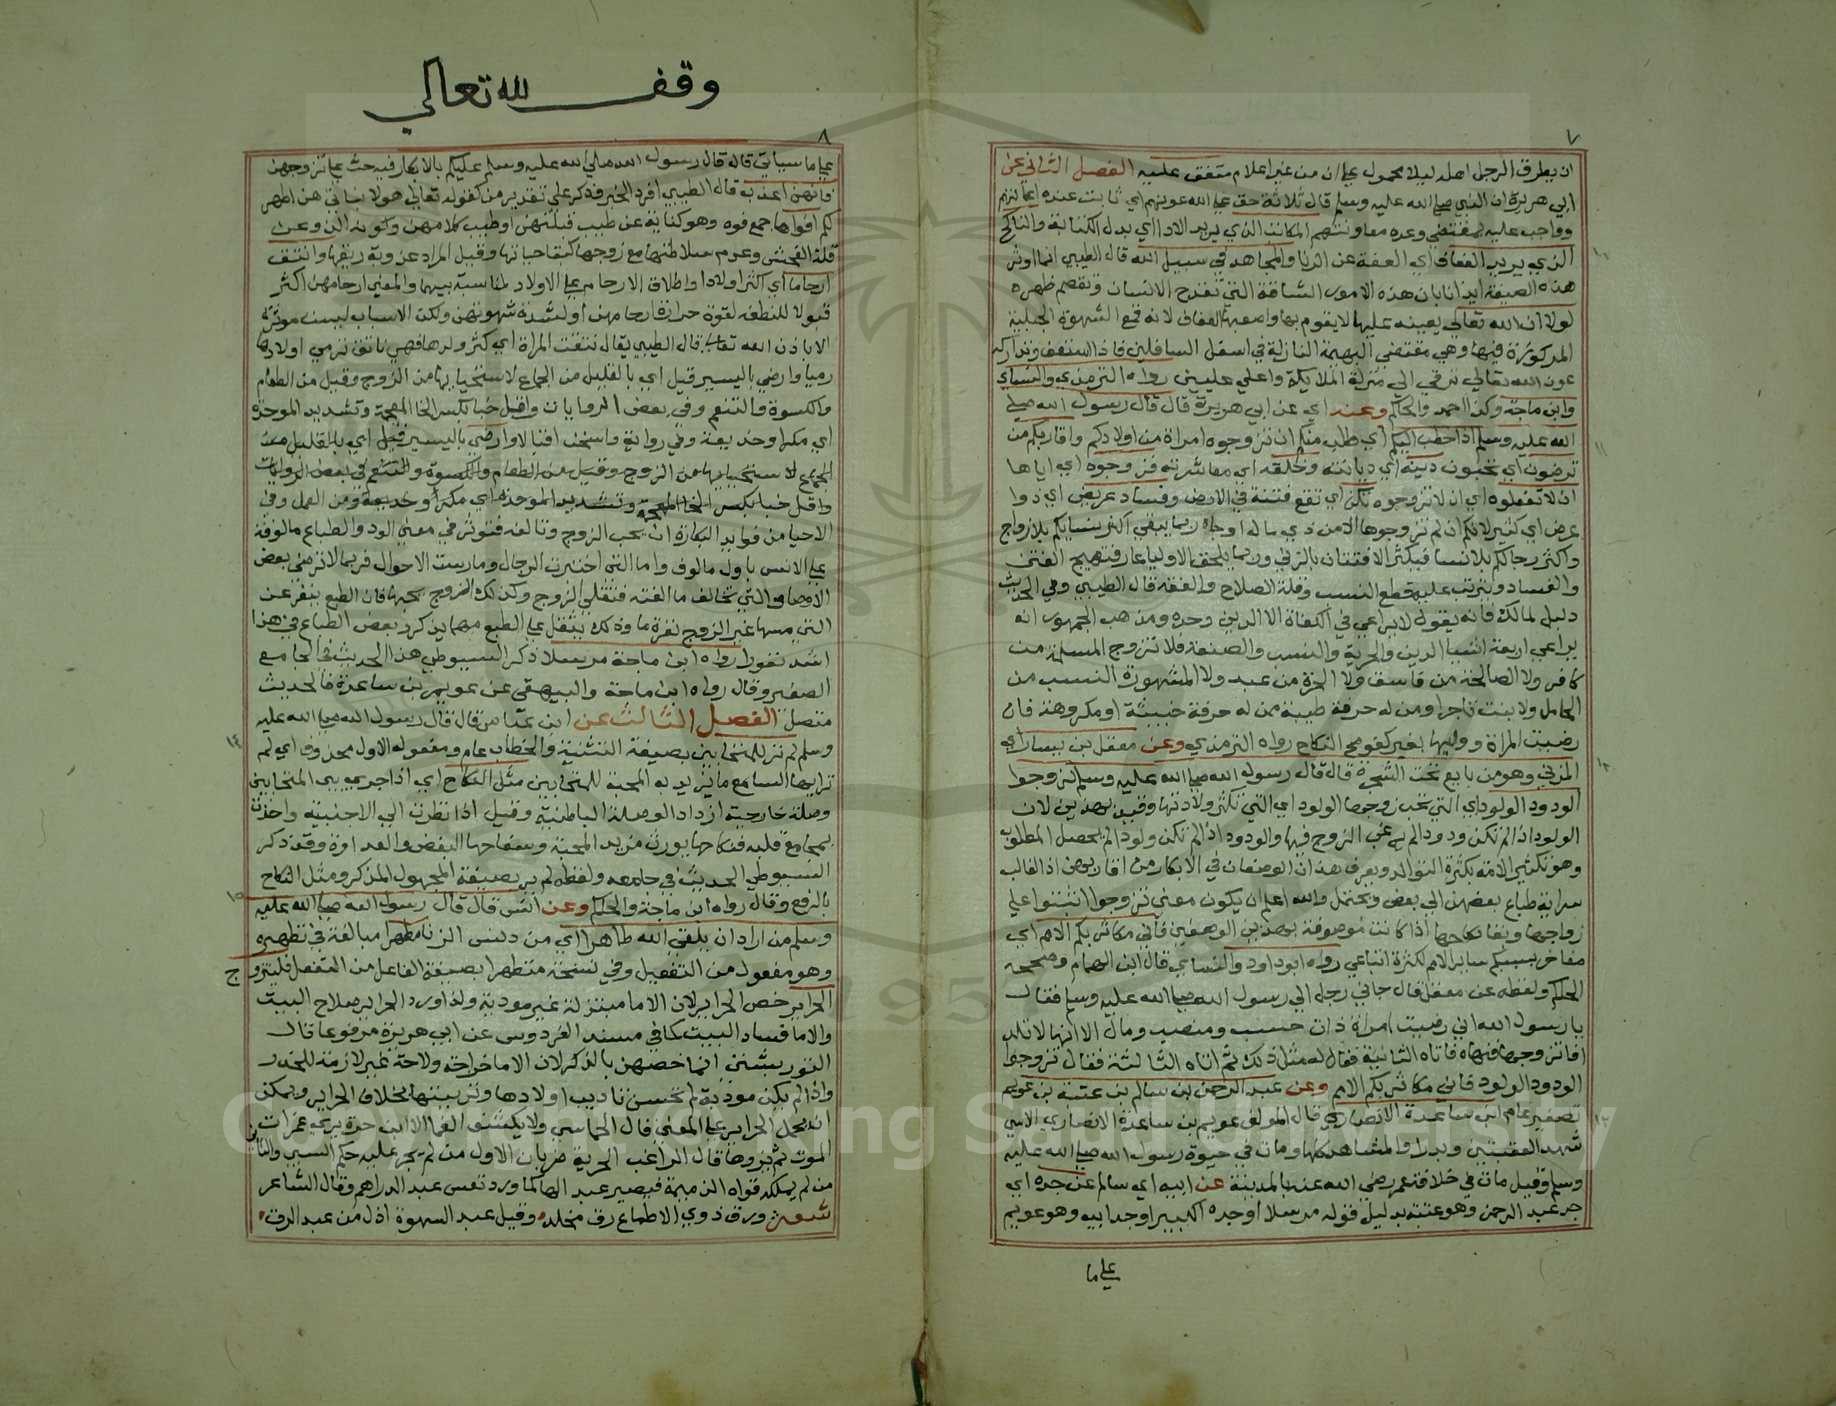 ٧
ان يطرق الرجل اهله ليلا محمول على ان من غير اعلام متفق عليه الفصل الثاني عن
ابي هريرة ان النبي صلى الله عليه وسلم قال ثلاثة حق على الله عونهم اي ثابت عنده
وواجب عليه بمقتضى وعده معاونتهم المكاتب الذي يريد الادا اي بدل الكتابة والناكح
الذي يريد العفاف اي العفة عن الزنا والمجاهد في سبيل الله قال الطيبي انما اوثر
هذه الصيغة ايذانا بان هذه الامور الشاقة التي تفدح الانسان وتقصم ظهره
لولا ان الله تعالى يعينه عليها لا يقوم بها واصعبها العفاف لانه قمع الشهوة الجبلية
المركوزة فيها وهي مقتضى البهيمة النازلة في اسفل السافلين فاذا استعف وتداركه
عون الله تعالى ترقى الى منزلة الملايكة واعلى عليين رواه الترمذي والنساي
وابن ماجة وكذا احمد والحاكم وعنه اي عن ابي هريرة قال قال رسول الله صلى
الله عليه وسلم اذا خطب اليكم اي طلب منكم ان تزوجوه امراة من اولادكم واقاربكم من
ترضون اي تحبون دينه اي ديانته وخلقه اي معاشرته فزوجوه اي اياها
ان لا تفعلوه اي ان لا تزوجوه تكن اي تقع فتنة في الارض وفساد عريض اي ذوا
عرض اي كثير لانكم ان لم تزوجوها الا من ذي مال او جاه ربما يبقى اكثر نسايكم بلا ازواج
واكثر رجالكم بلا نسا فيكثر الافتتان بالزنى وربما يلحق الاوليا عار فتهيج الفتن
والفساد ويترتب عليه قطع النسب وقلة الصلاح والعفة قال الطيبي وفي الحديث
دليل لمالك فانه يقول لا يراعى في الكفاة الا الدين وحده ومذهب الجمهور انه
يراعى اربعة اشيا الدين والحرية والنسب والصنعة فلا تزوج المسلمة من
كافر ولا الصالحة من فاسق ولا الحرة من عبد ولا المشهورة النسب من
الخامل ولا بنت تاجر او من له حرفة طيبة ممن له حرفة خبيثة او مكروهة فان
رضيت المراة ووليها بغير كفو صح النكاح رواه الترمذي وعن معقل بن يسار اي
المزني وهو من بايع تحت الشجرة قال قال رسول الله صلى الله عليه وسلم تزوجوا
الودود الولود اي التي تحب زوجها الولود اي التي تكثر ولادتها وقيد بهذين لان
الولود اذا لم تكن ودودا لم يرغب الزوج فيها والودود اذا لم تكن ولودا لم يحصل المطلوب
وهو تكثير الامة بكثرة التوالد ويعرف هذان الوصفان في الابكار من اقاربهن اذ الغالب
سراية طباع بعضهن الى بعض ويحتمل والله اعلم ان يكون معنى تزوجوا اثبتوا على
زواجها وبقا نكاحها اذا كانت موصوفة بهذين الوصفين فاني مكاثر بكم الامم اي
مفاخر بسببكم ساير الامم لكثرة اتباعي رواه ابو داود والنساي قال ابن الهمام وصححه
الحاكم ولفظه عن معقل قال جاني رجل الى رسول الله صلى الله عليه وسلم فقال
يا رسول الله اني رضيت امراة ذات حسب ومنصب ومال الا انها لا تلد
افاتزوجها فنهاه فاتاه الثانية فقال له مثل ذلك ثم اتاه الثالثة فقال تزوجوا
الودود الولود فاني مكاثر بكم الامم وعن عبد الرحمن بن سالم بن عتبة بن عويم
تصغير عام ابن ساعدة الانصاري قال المولف عويم بن ساعدة الانصاري الاسي
شهد العقبتين وبدرا والمشاهد كلها ومات في حيوة رسول الله صلى الله عليه
وسلم وقيل مات في خلافة عمر رضي الله عنه بالمدينة عن ابيه اي سالم عن جده اي
جد عبد الرحمن وهو عتبة بدليل قوله مرسلا او جده الكبير او جد ابيه وهو عويم
على ما
وقف لله تعالى
٨
على ما سياتي قال قال رسول الله صلى الله عليه وسلم عليكم بالابكار فيه حث على تزوجهن
فانهن اعذب قال الطيبي افرد الخبر وذكر على تقدير من كقوله تعالى هولا بناتي هن اطهر
لكم افواها جمع فوه وهو كناية عن طيب قبلتهن او طيب كلامهن
قلة الفحش وعدم سلاطتها مع زوجها وقيل المراد عذوبة ريقها وانتق
ارحاما اي اكثر اولادا واطلاق الارحام على الاولاد لمناسبة بينهما والمعنى ارحامهن اكثر
قبولا للنطفة لقوة حرارة ارحامهن او لشدة شهوتهن ولكن الاسباب ليست موثرة
الا باذن الله تعالى قال الطيبي يقال نتقت المراة اي كثر ولدها فهي ناتق ترمي اولادها
رميا وارضى باليسير قيل اي بالقليل من الجماع لاستحيايها من الزوج وقيل من الطعام
والكسوة والتنعم وفي بعض الروايات واقل خبا بكسر الخا المعجمة وتشديد الموحدة
اي مكرا وخديعة وفي رواية واسخن اقبالا وارضى باليسير قيل اي بالقليل من
الجماع لاستحيايها من الزوج وقيل من الطعام والكسوة والتنعم في بعض الروايات
واقل خبا بكسر الخا المعجمة وتشديد الموحدة اي مكرا وخديعة ومن العمل وفي
الاحيا من فوايد البكارة ان تحب الزوج وتالفه فتوثر في معنى الود والطباع مالوفة
على الانس باول مالوف واما التي اختبرت الرجال ومارست الاحوال فربما لا ترضى بعض
الاوصاف التي تخالف ما الفته فتقلي الزوج وكذلك الزوج يحبها فان الطبع ينفر عن
التي مسها غير الزوج نفرة ما وذلك يثقل على الطبع مهما يذكر وبعض الطباع في هذا
اشد نفورا رواه ابن ماجة مرسلا ذكر السيوطي هذا الحديث في الجامع
الصغير وقال رواه ابن ماجة والبيهقي عن عويمر بن ساعدة فالحديث
متصل الفصل الثالث عن ابن عباس قال قال رسول الله صلى الله عليه
وسلم لم تر للمتحابين بصيغة التثنية والخطاب عام ومفعوله الاول محذوف اي لم
تر ايها السامع ما يزيد به المحبة للمتحابين مثل النكاح اي اذا جرى بين المتحابين
وصلة خارجية ازداد الوصلة الباطنية وقيل اذا نظرت الى الاجنبية واخذت
بمجامع قلبه فنكاحها يورث مزيد المحبة وسفاحها البغض والعداوة وقد ذكر
السيوطي الحديث في جامعه ولفظه لم ير بصيغة المجهول المذكر ومثل النكاح
بالرفع وقال رواه ابن ماجة والحاكم وعن انس قال قال رسول الله صلى الله عليه
وسلم من اراد ان يلقى الله طاهرا اي من دنس الزنا مطهرا مبالغة في تطهيره
وهو مفعول من التفعيل وفي نسخة متطهرا بصيغة الفاعل من التفعل فليتزوج
الحراير خص الحراير لان الاما مبتذلة غير مودبة ولذا ورد الحراير صلاح البيت
والاما فساد البيت كما في مسند الفردوس عن ابي هريرة مرفوعا قال
التوربشتي انما خصهن بالذكر لان الاما خراجة ولاجة غير لازمة للخدر
واذا لم يكن مودبة لم تحسن تاديب اولادها وتربيتها بخلاف الحراير ويمكن
ان يحمل الحراير على المعنى قال الحماسي ولا يكشف الغما الا ابن حرة يرى غمرات
الموت ثم يزورها قال الراغب الحرية ضربان الاول من لم يجر عليه حكم السبي والثاني
من لم يملكه قواه الذميمة فيصير عبدا لها كما ورد تعس عبد الدراهم وقال الشاعر
شعر ورق ذوي الاطماع رق مخلد وقيل عبد الشهوة اذل من عبد الرق